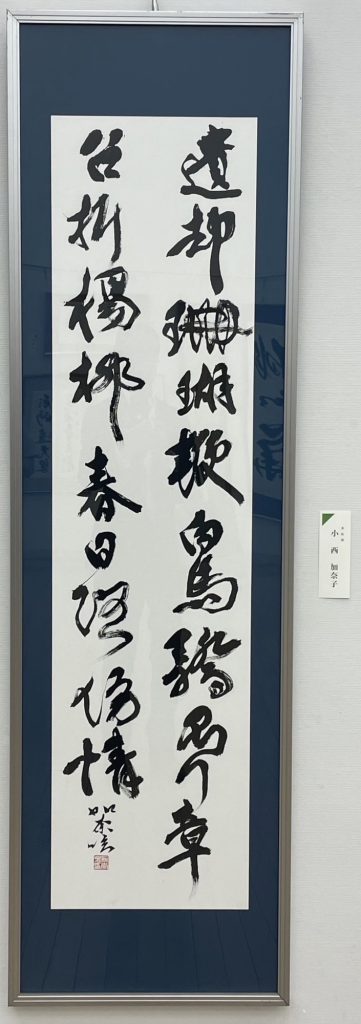 遺却珊瑚鞭白馬驕不行章
台折楊柳春日路傍情
小西 加奈子